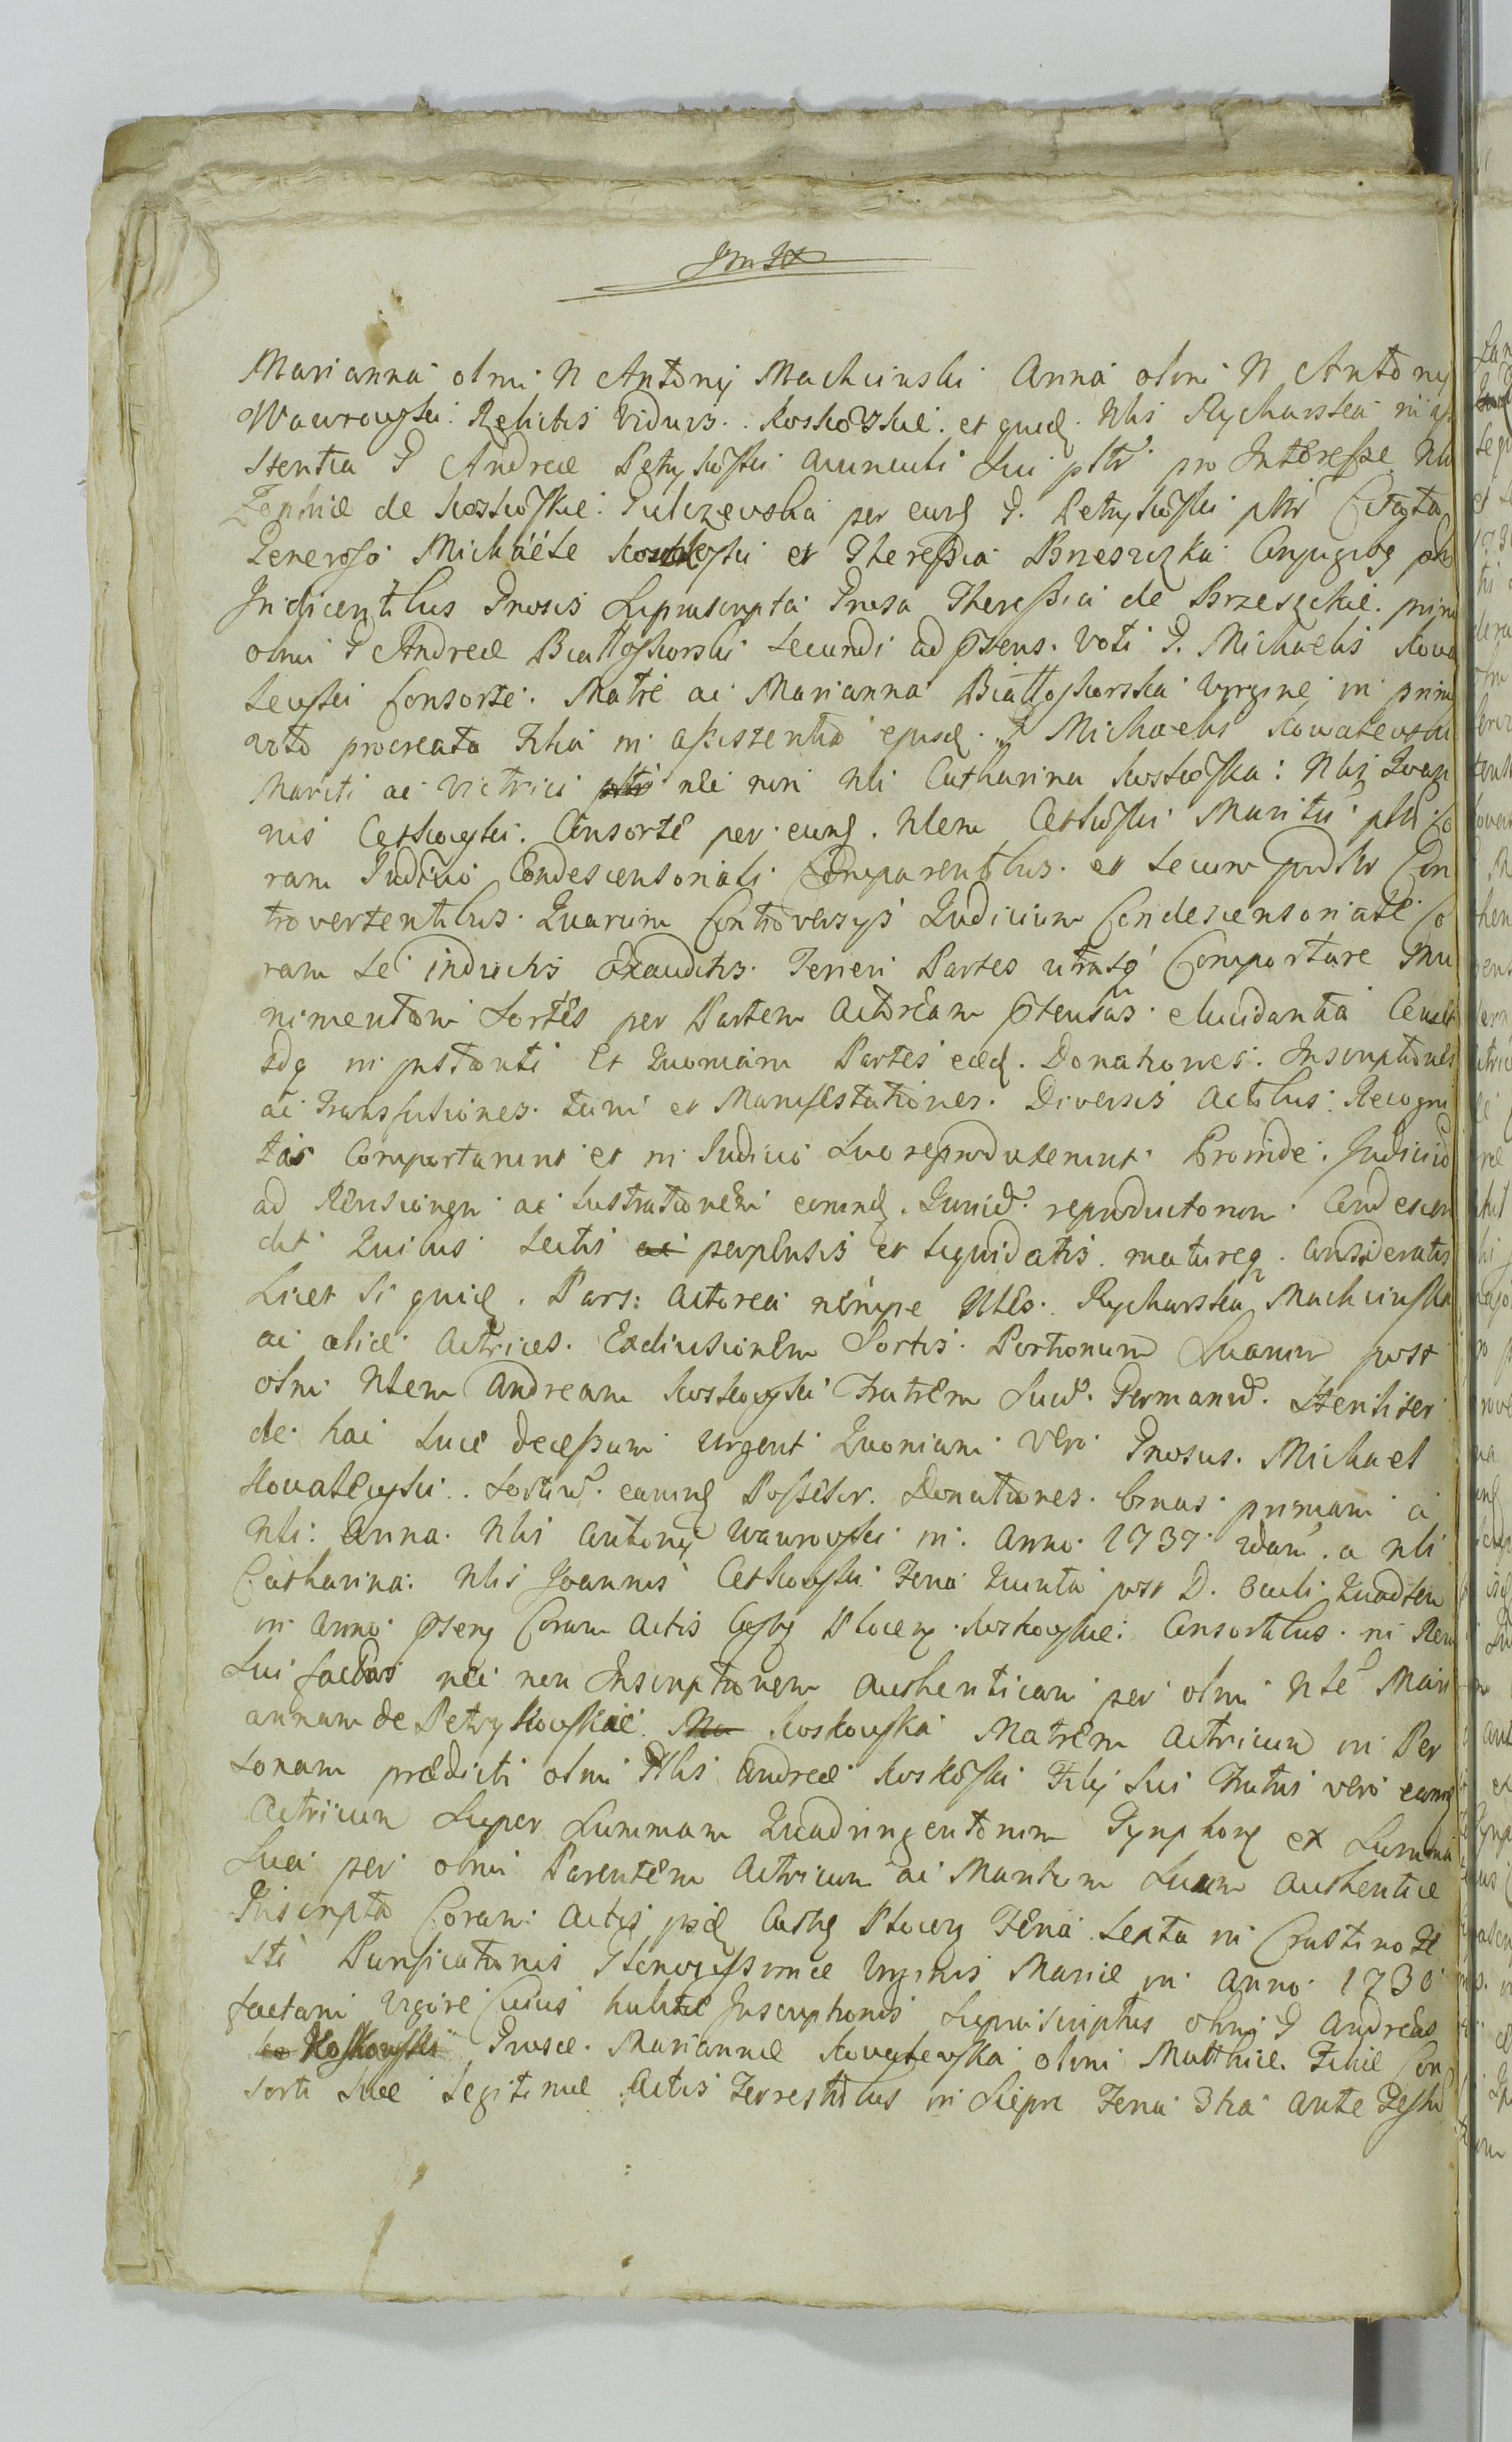 Marianna olmi N Antonij Machcinski Anna olmi N Antonij
Wawrowski Relictis Viduis. Koskowskie. et quid. Nlis Rycharska in assi
stentia G Andreæ Petrykoski Avunculi Sui pltr pro Interesse Nlis
Zophiæ de Koskoskie. Gulczevska per eund G. Petrykoski pltr Citata
Generoso Michaele Kowaleski et Theressia Brzesczka Conjugibs
Indicentibus Gnosis Suprascripta Gnosa Theressia de Brzesckie. primi
olmi G Andreæ Białłoskorski Secundi ad præsens. Voti G. Michaelis Kowa
lewski Consorte. Matre ac Marianna Białłoskorska Virgine in primo
voto procreata Filia in assistentia ejusd. G Michaelis Kowalewski
Mariti ac Vitrici nec non Nli Catharina Koskoska: Nlis Joan
nis Cetkowski. Consorte per eund. Nlem Cetkoski Maritu pltr Co
ram Judicio Condescensoriali Comparentibus. et Secum Con
trovertentibus. Quarum Controversijs Judicium Condescensoriale Co
ram Se inductis Exauditis. Teneri Partes utrasq Comportare Mu
nimentorum Sortes per Partem Actoream prætensas elucidantia Censet
Idq in instanti Et Quoniam Partes eæd. Donationes. Inscriptiones
ac Transfusiones. tum et Manifestationes. Diversis Actibus Recogni
tas Comportarunt et in Judicio Suo reproduxerunt Proinde. Judiciu
ad Revisionem ac Lustrationem eorund. Jurium reproductorum. Condescen
dit Quibus Lectis ac perpensis et liquidatis. matureq. Consideratis
Licet Si quid. Pars: Actorea nempe Nles. Rycharska, Machcinska
ac aliæ Actrices. Exdivisionem Sortis. Portionum Suarum post
olmi Nlem Andream Koskowski Fratrem Suu. Germanu. Steriliter
de hac Luce decessum urgent Quoniam vero Gnosus. Michael
Kovalewski. Sortiu. earund Possesor. Donationes. binas primam a
Nli: Anna. Nlis Antonij Wawrowski in anno 1737 2dam. a Nli
Catharina: Nlis Joannis Cetkowski Feria Quinta post D. Oculi Quadrlem
in anno præsens Coram Actis Castrs Plocens. Koskowskie: Consortibus in Rem
Sui factas nec non Inscriptionem authenticam per olmi Nle Mari
annam de Petrykowskie. Ma Koskowska Matrem Actricum in Per
sonam prædicti olmi Nlis Andreæ Koskoski Filij Sui Fratris vero earund
Actricum Super Summam Quadringentorum Tynphorum ex Summa
Sua per olmi Parentem Actricum ac Maritum Suum authentice
Inscripta Coram Actis ijsd Castrs Plocens Feria Sexta in Crastino Fe
sti Purificationis Gloriosissimæ Virginis Mariæ in Anno 1730
factam Vigore Cuius habitæ Inscriptionis Suprascriptus olmi G Andreas
Koskowski Gnosæ. Mariannæ Kowalewska olmi Matthiæ. Filiæ Con
sorti Suæ legitimæ Actis Terrestribus in Sieprc Feria 3tia Ante Festu